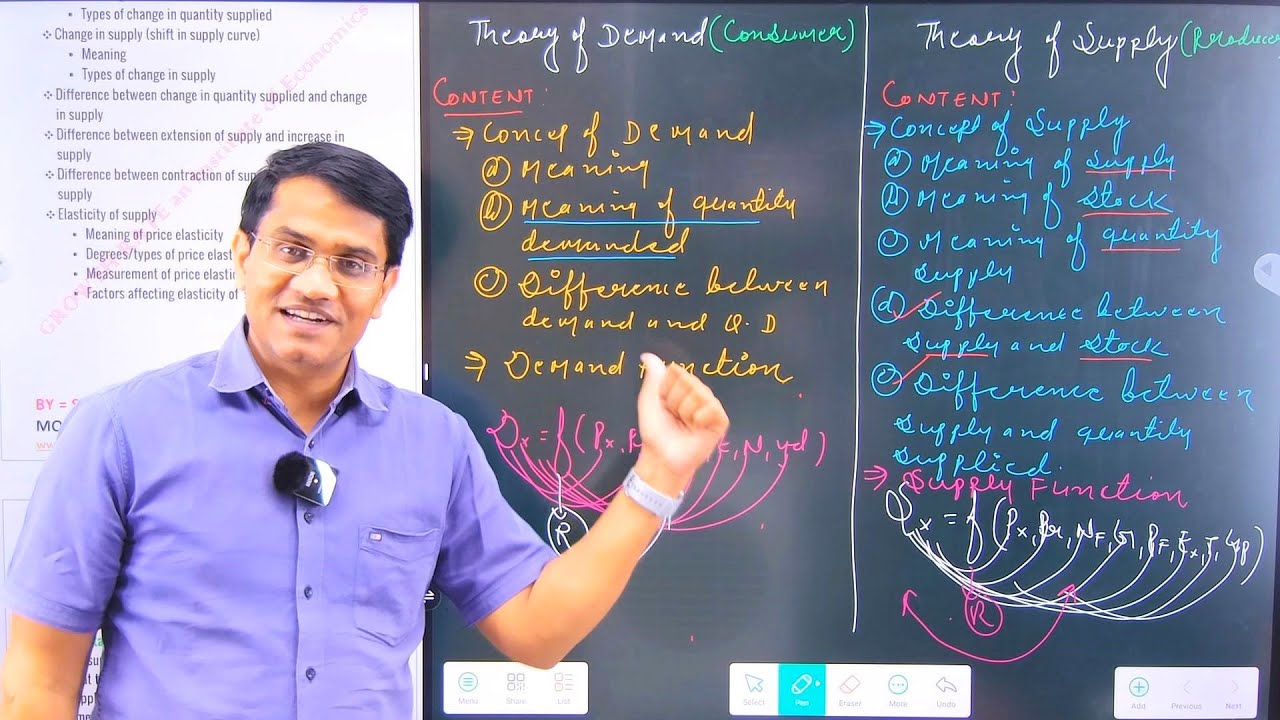 • Types of change in quantity supplied
❖ Change in supply (shift in supply curve)
• Meaning
• Types of change in supply
❖ Difference between change in quantity supplied and change
in supply
❖ Difference between extension of supply and increase in
supply
❖ Difference between contraction of
supply
❖ Elasticity of supply
• Meaning of price elasticity
• Degrees/types of price
• Measurement of price
• Factors affecting elasticity of
Economics
BY =
Theory of Demand (Consumer)
CONTENT:
⇒ Concep of Demand
(a) Meaning
(b) Meaning of quantity
demanded
(c) Difference between
demand and Q.D
⇒ Demand Function
Dx = f(Px, , N, yd)
R
Theory of Supply (Producer
CONTENT:
⇒ Concept of Supply
(a) Meaning of Supply
(b) Meaning of Stock
(c) Meaning of quantity
Supply
(d) Difference between
Supply and Stock
(e) Difference between
Supply and quantity
Supplied.
⇒ Supply Function
x = f(Px, Pr, NF, G, PF, Ex, T, Gp)
R
Menu Share List
Select Pen Eraser More Undo
Add Previous Next